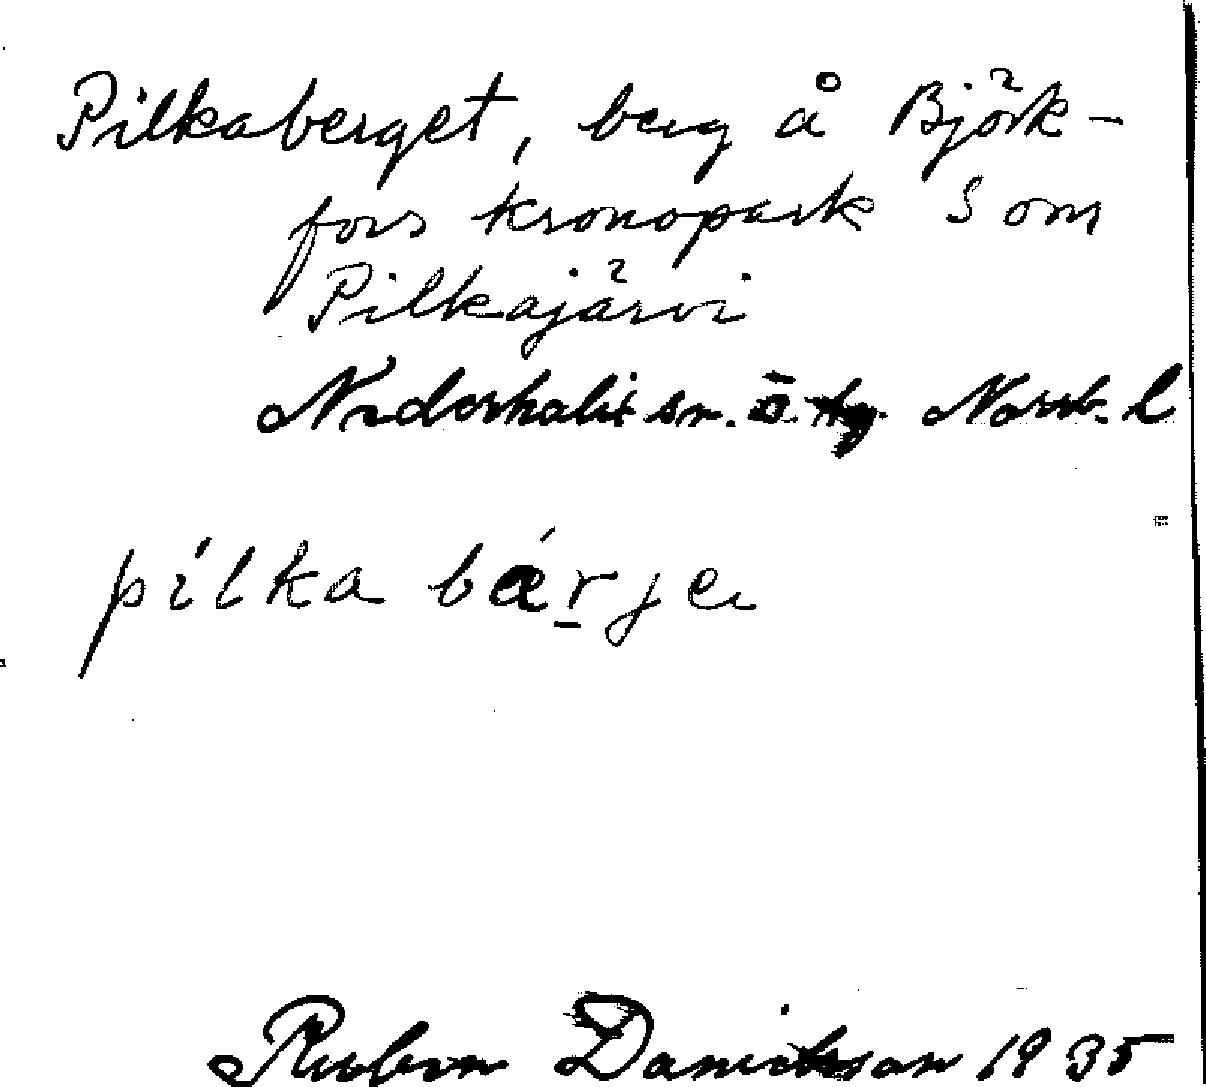 Pilkaberget, berg å Björk-
fors kronopark S om
Pilkajärvi
Nederkalix sn. Norrb. l
pílka bǽrje
Ruben Danielsson 1935